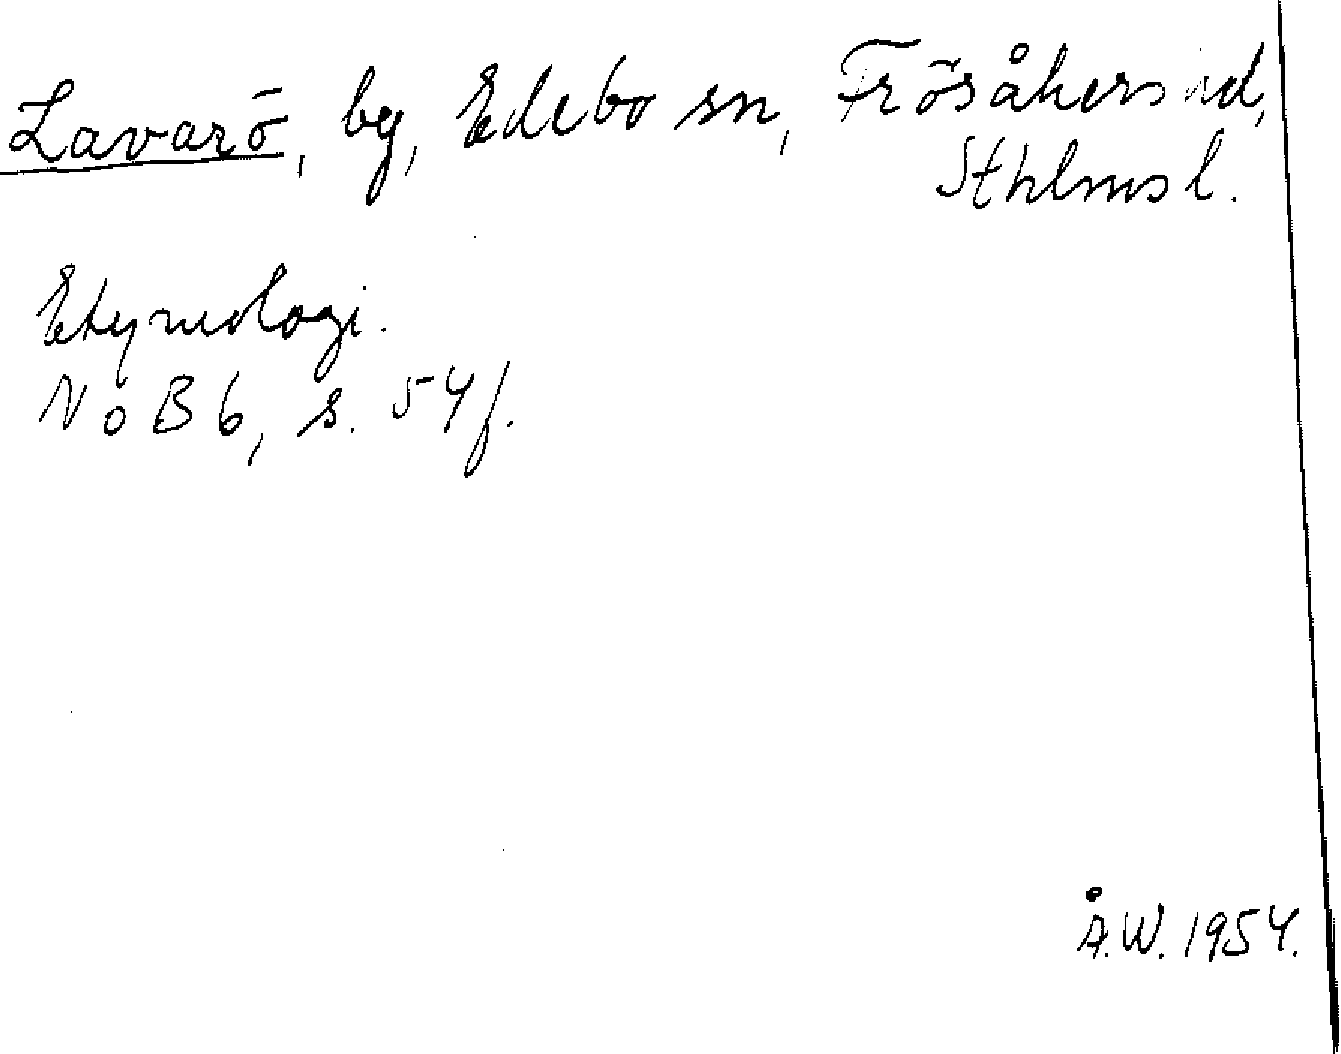 Lavarö, by, Edebo sn, Frösåkers hd,
Sthlms l.
Etymologi.
NoB 6, s. 54 f.
Å.W. 1954.